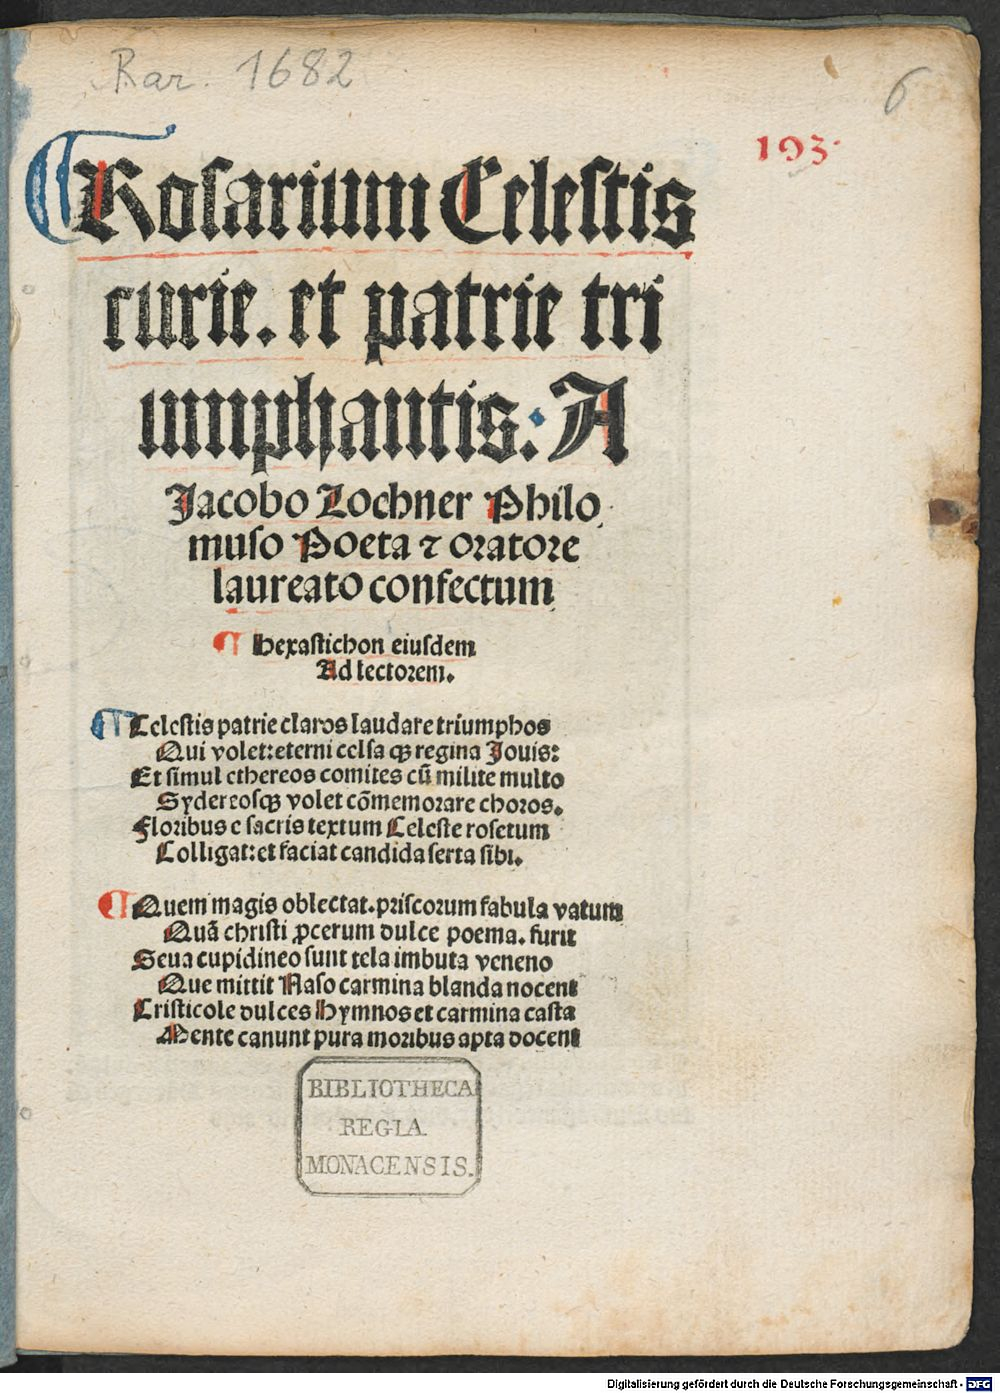 Rar. 1682
6
193.
¶ Rosarium Celestis
curie. et patrie tri
umphantis: A
Jacobo Lochner Philo
muso Poeta ⁊ oratore
laureato confectum
¶ Hexastichon eiusdem
Ad lectorem.
¶ Celestis patrie claros laudare triumphos
Qui volet: eterni celsa qꝫ regina Jouis:
Et simul ethereos comites cū milite multo
Sydereosqꝫ volet cōmemorare choros.
Floribus e sacris textum Celeste rosetum
Colligat: et faciat candida serta sibi.
¶ Quem magis oblectat. priscorum fabula vatum
Quā christi ꝓcerum dulce poema. furit
Seua cupidineo sunt tela imbuta veneno
Que mittit Naso carmina blanda nocent
Cristicole dulces hymnos et carmina casta
Mente canunt pura moribus apta docent
BIBLIOTHECA
REGIA
MONACENSIS.
Digitalisierung gefördert durch die Deutsche Forschungsgemeinschaft - DFG